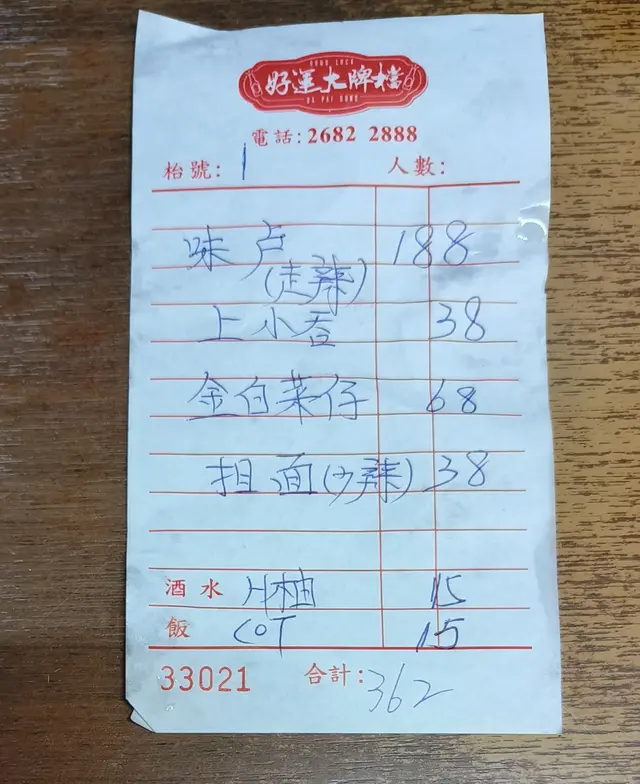 GOOD LUCK
好運大牌檔
DA PAI DONG
電話: 2682 2888
枱號: 1 人數:
味卢 188
(走辣)
上小吞 38
金白菜仔 68
担面(少辣) 38
酒水 H柚 15
飯 COT 15
33021 合計: 362